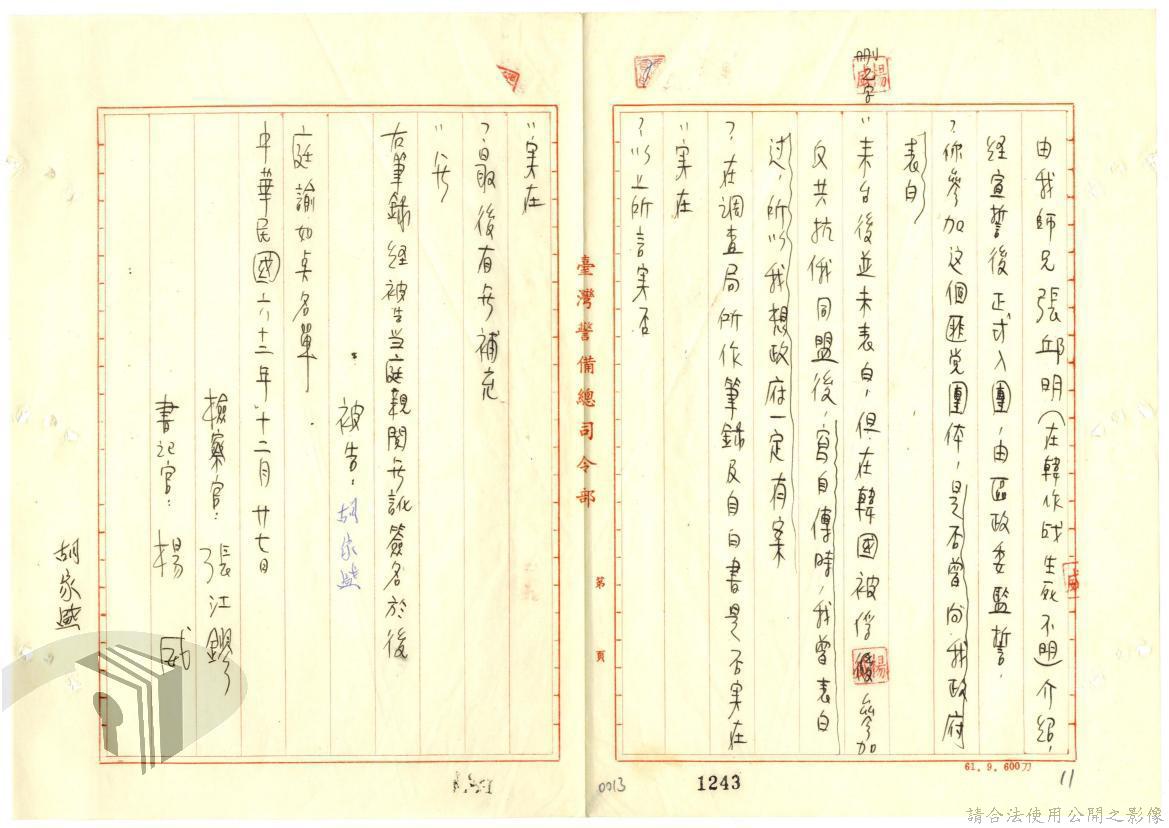 由我師兄張邱明(在韓作战生死不明)介紹,
经宣誓後正式入團,由區政委監誓.
?你參加这個匪党團体,是否曾向我政府
表白
刪乙字
〃来台後並未表白,但在韓國被俘參加
反共抗俄同盟後,寫自傳時,我曾表白
过,所以我想政府一定有案
?在調查局所作筆錄及自白書是否実在
〃実在
?以上所言実否
臺灣警備總司令部
第 頁
〃実在
?最後有无補充
〃无
右筆錄经被告当庭親閱无訛簽名於後
被告:胡家
庭諭如点名單
中華民國六十二年十二月廿七日
檢察官:張江
書記官:楊威
胡家
61.9.600刀
0013
1243
11
請合法使用公開之影像